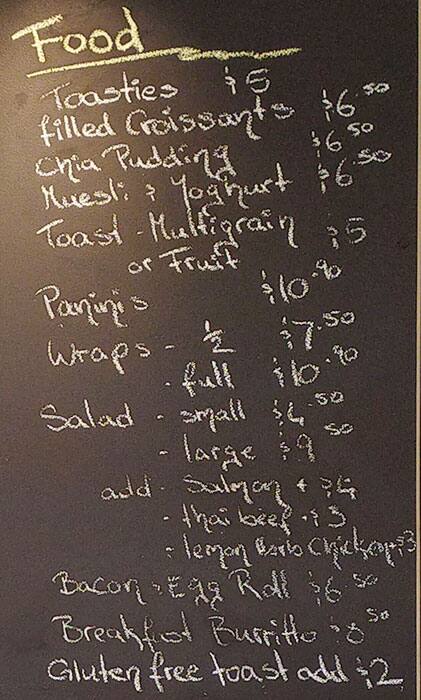 Food
Toasties $5
filled Croissants $6.50
Chia Pudding $6.50
Muesli & Yoghurt $6.50
Toast - Multigrain $5
or Fruit
Panini's $10.90
Wraps - 1/2 $7.50
- full $10.90
Salad - small $6.50
- large $9.50
add - Salmon + $4
- thai beef + $3
- lemon Herb Chicken + $3
Bacon & Egg Roll $6.50
Breakfast Burritto $8.50
Gluten free toast add $2